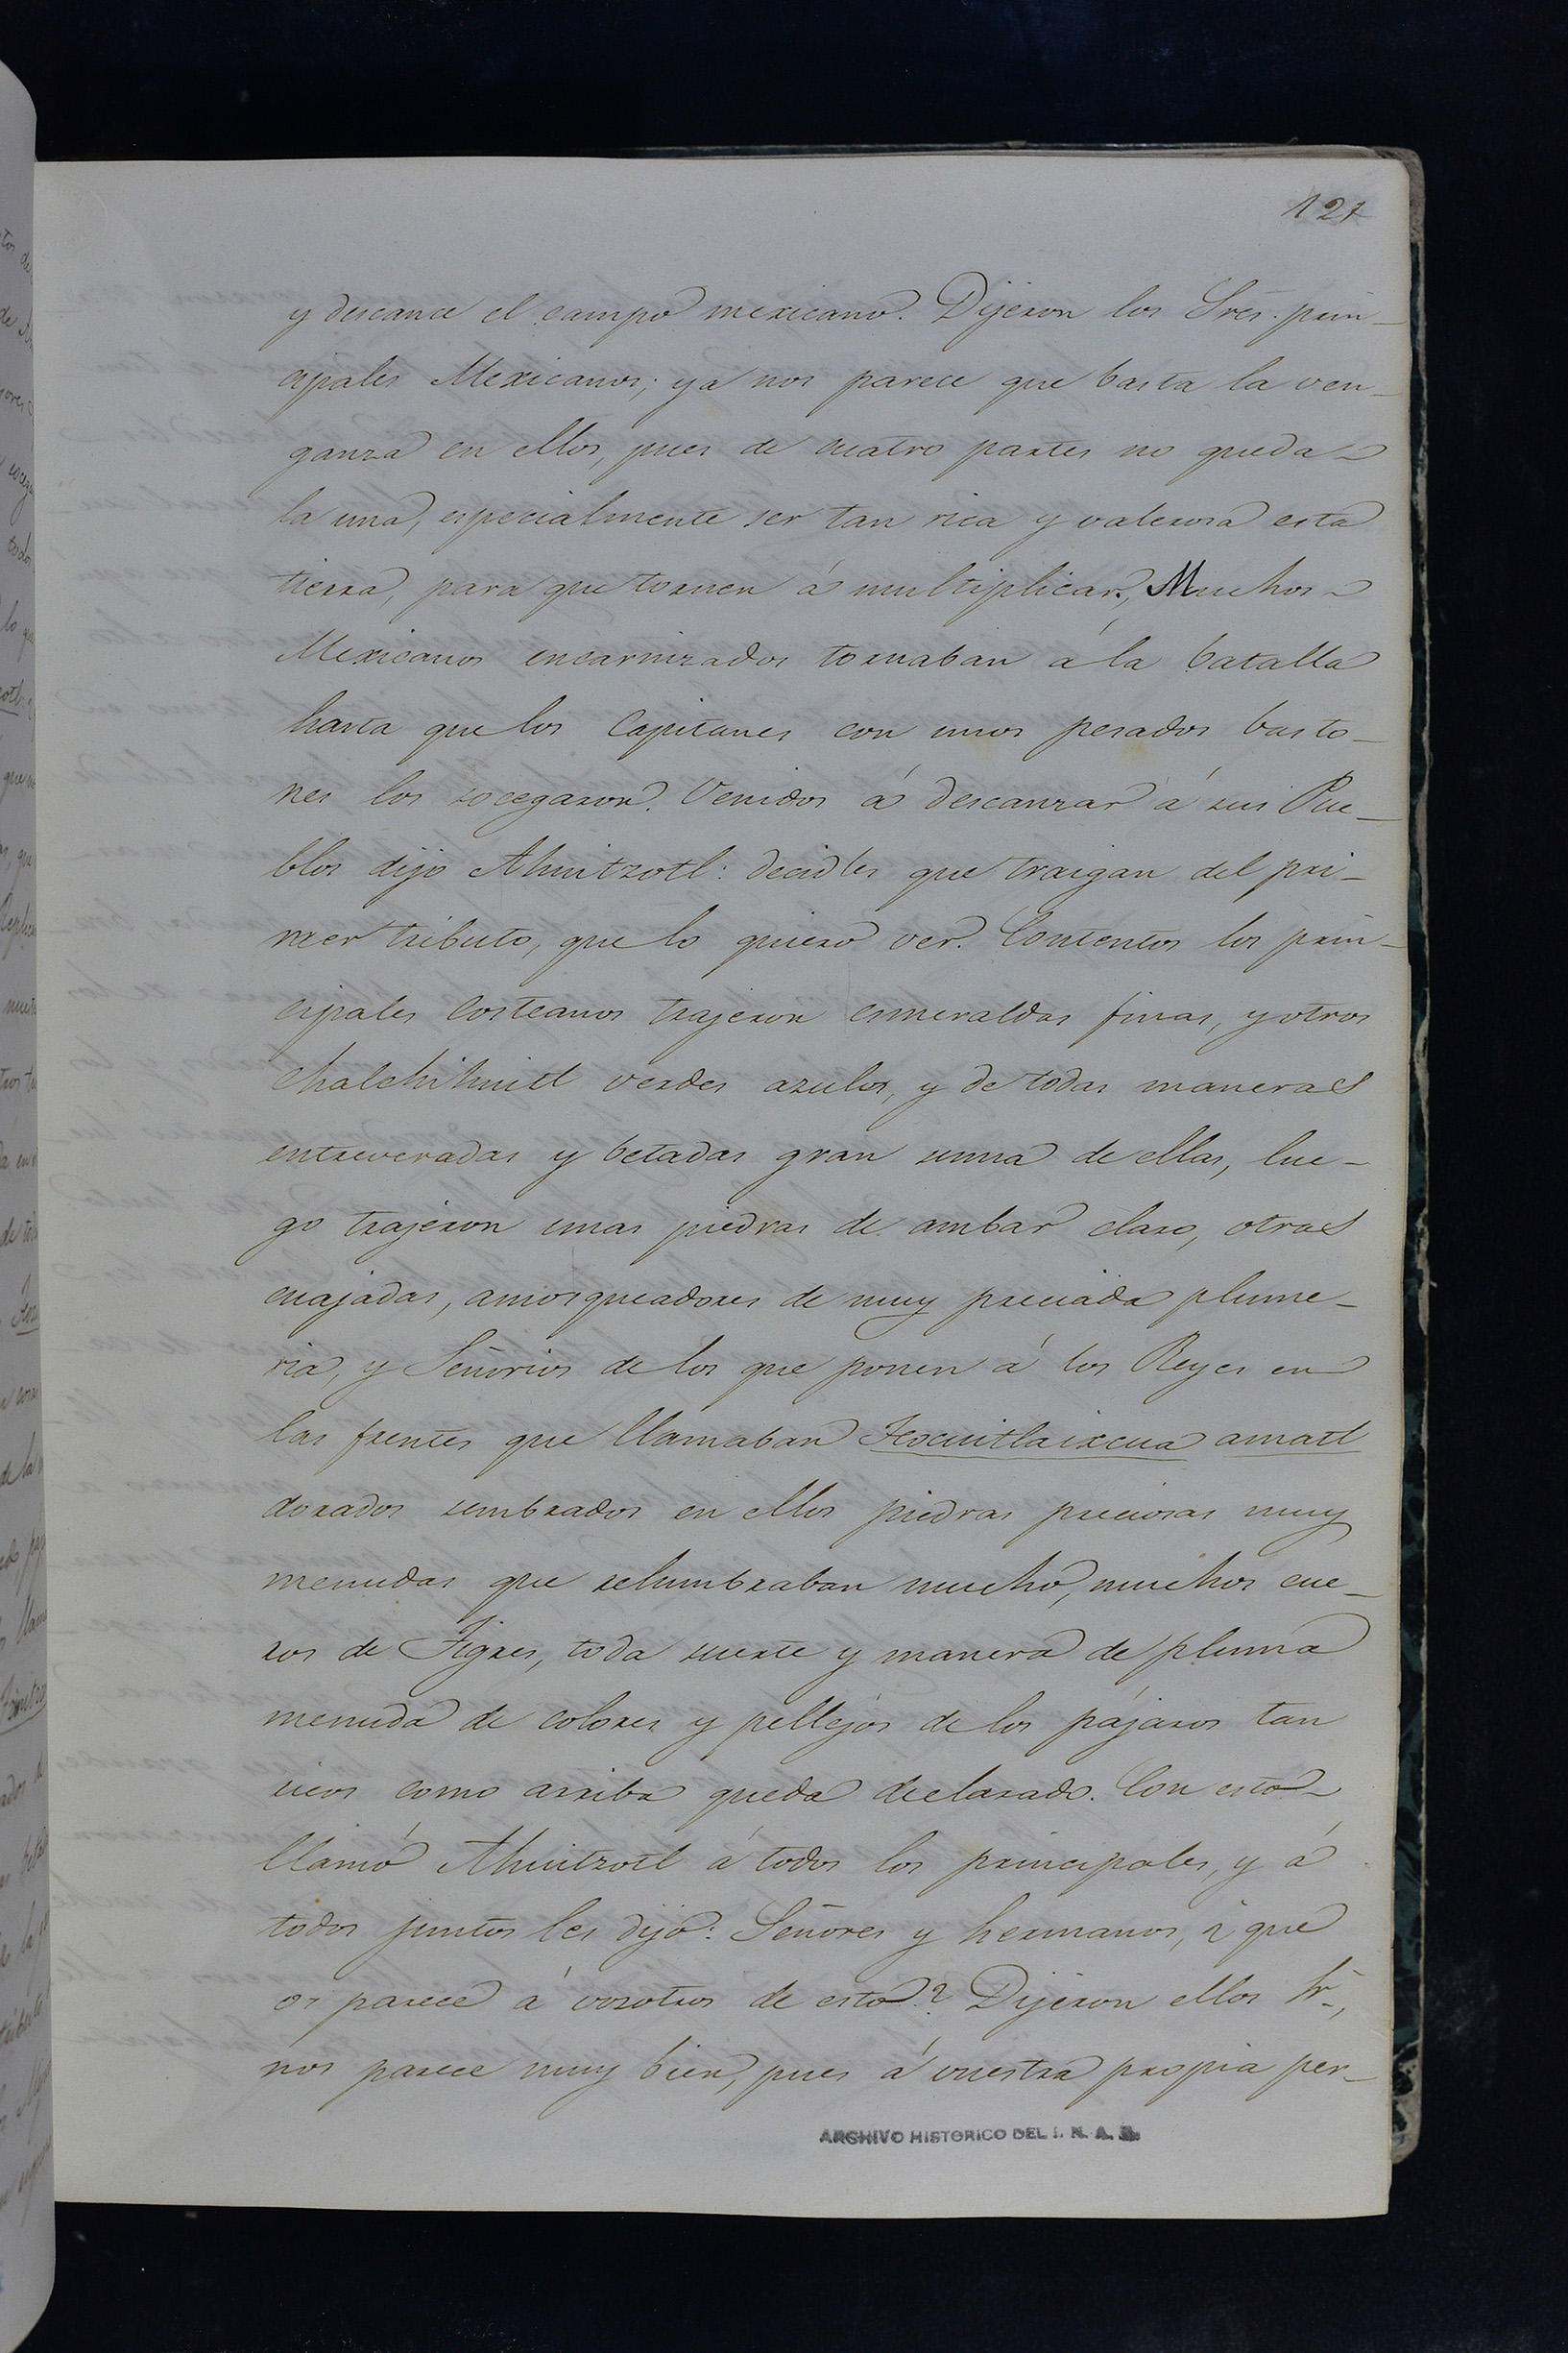 127
y descance el campo mexicano. Dijeron los Sres. prin-
cipales Mexicanos; ya nos parece que basta la ven-
ganza en ellos, pues de cuatro partes no queda-
la una, especialmente ser tan rica y valerosa esta
tierra, para que tornen á multiplicar., Muchos-
Mexicanos encarnizados tornaban á la batalla
hasta que los Capitanes con unos pesados basto-
nes los socegaron. Venidos á descanzar á sus Pue-
blos dijo Ahuitzotl: decidles que traigan del pri-
mer tributo, que lo quiero ver. Contentos los prin-
cipales Costeanos trajeron esmeraldas finas, y otros
chalchihuitl verdes azules, y de todas maneras
entreveradas y betadas gran suma de ellas, lue-
go trajeron unas piedras de ambar claro, otras
cuajadas, amosqueadores de muy preciada plume-
ria, y Señorios de los que ponen á los Reyes en
las frentes que llamaban Teocuitlaixcua amatl
dorados sembrados en ellos piedras preciosas muy
menudas que relumbraban mucho, muchos cue-
ros de Tigres, toda suerte y manera de pluma
menuda de colores y pellejos de los pájaros tan
ricos como arriba queda declarado. Con esto-
llamó Ahuitzotl á todos los principales, y á
todos juntos les dijo: Señores y hermanos, ¿que
os parece á vosotros de esto? Dijeron ellos Sr.,
nos parece muy bien, pues á vuestra propia per-
ARCHIVO HISTORICO DEL I. N. A. H.